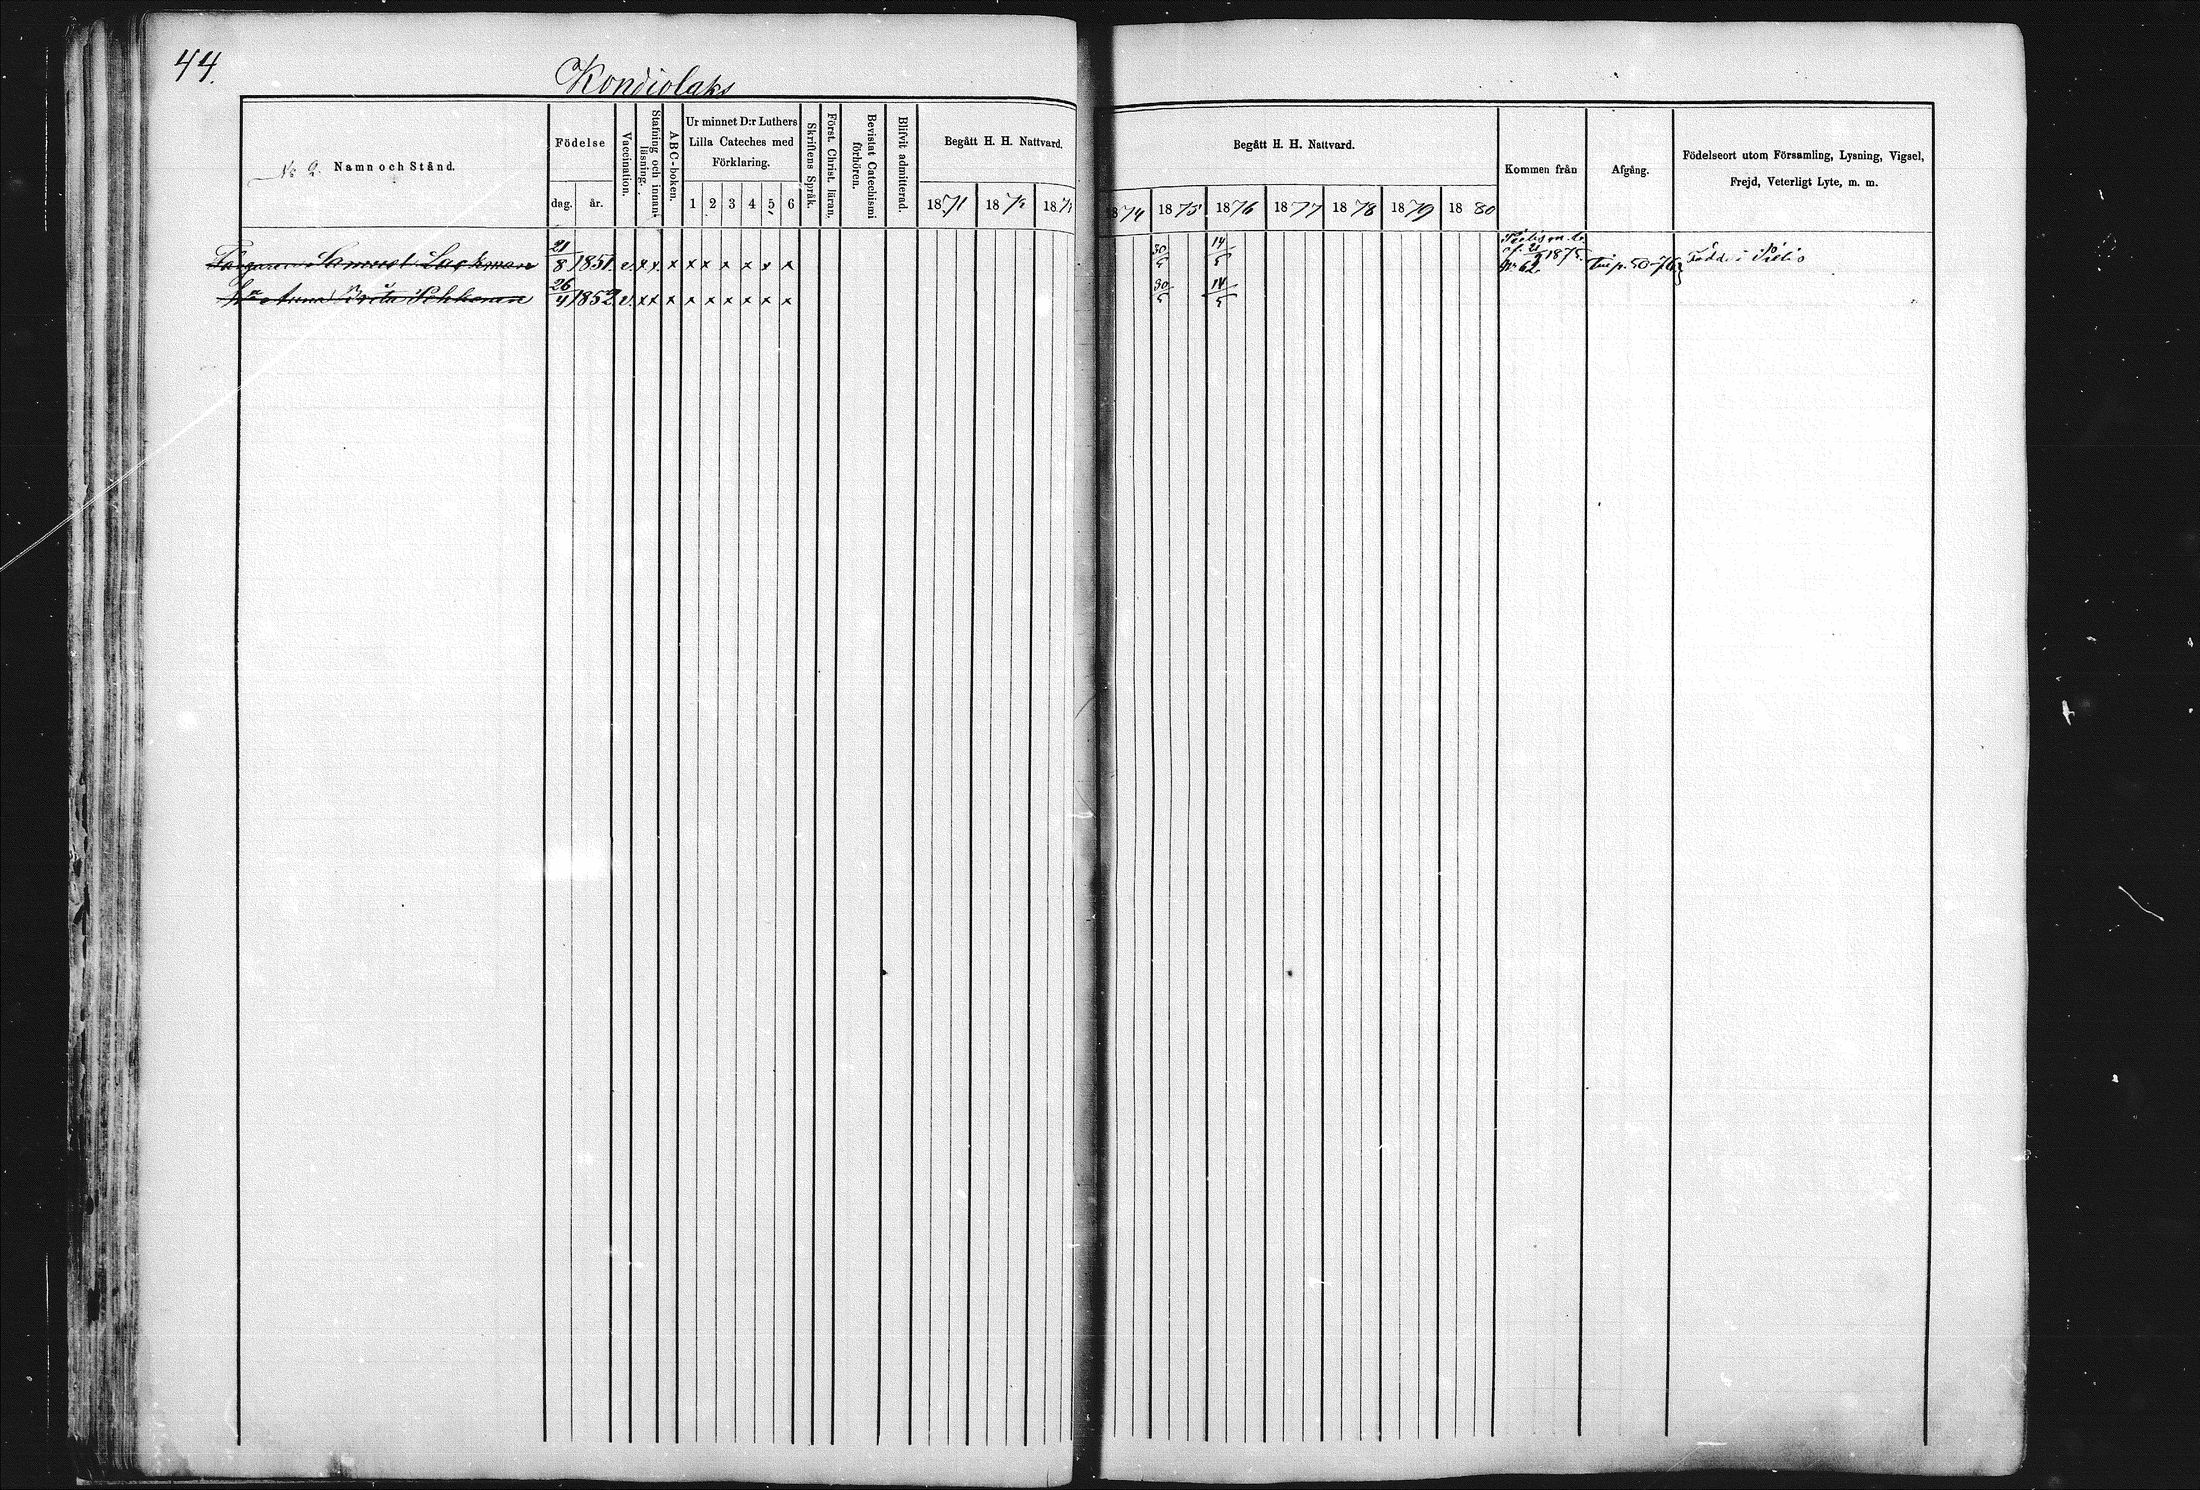 44.
Kondiolaks
No 2. Namn och Stånd.
Födelse
dag. år.
Vaccination.
Stafning och innanläsning.
ABC-boken.
Ur minnet D:r Luthers
Lilla Cateches med
Förklaring.
1 2 3 4 5 6
Skriftens Språk.
Först. Christ. läran.
Bevistat Catechismi förhören.
Blifvit admitterad.
Begått H. H. Nattvard.
1871 1872 187
Begått H. H. Nattvard.
1874 1875 1876 1877 1878 1879 1880
Kommen från
Afgång.
Födelseort utom Församling, Lysning, Vigsel,
Frejd, Veterligt Lyte, m. m.
Färgaren Samuel Lackman 21/8 1851. v. x x x x x x x x x 30/5 14/5 1875. No 62. 50-76 Födde i Pielis
Anna Brita 26/4 1852 v. x x x x x x x x x 30/5 14/5